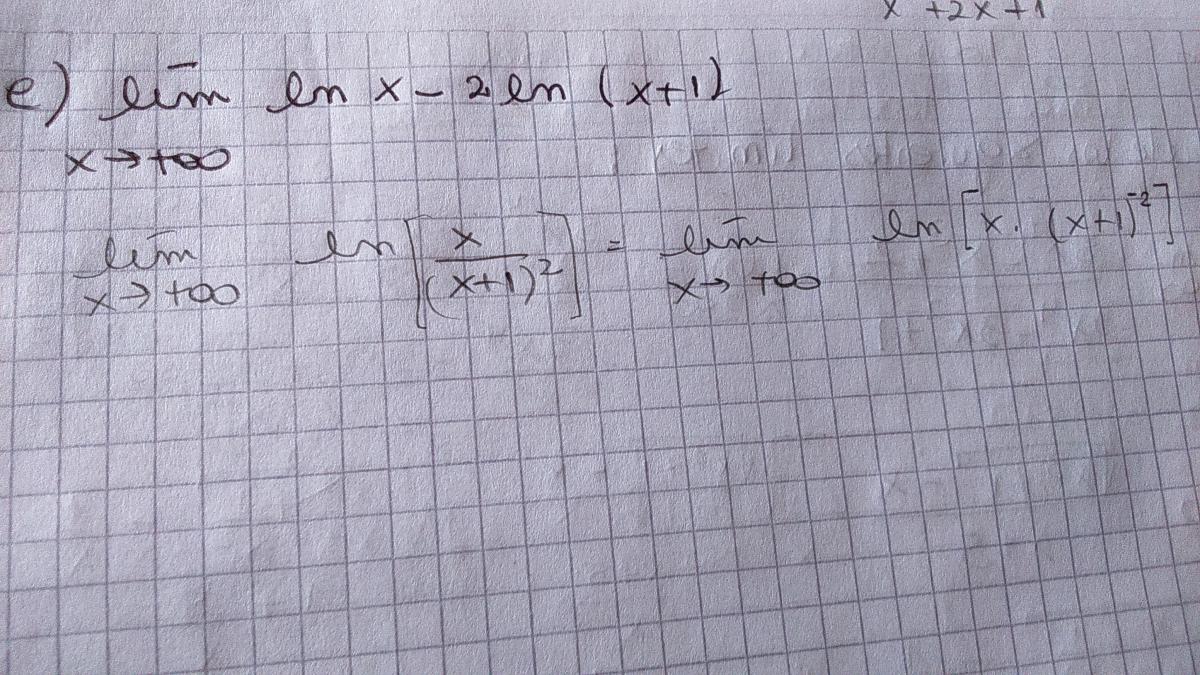 x +2x+1
e) lim ln x - 2 ln (x+1)
x→+∞
lim ln [x/(x+1)²] = lim ln [x. (x+1)⁻²]
x→+∞ x→ +∞